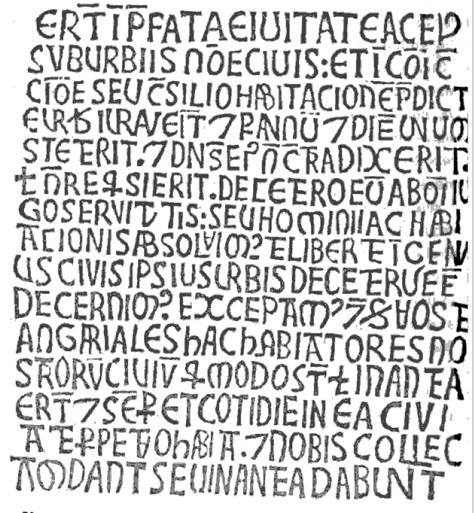 ERT̄ ĪP̄FATA EIUITATE AC EIP
SVBURBIIS NŌECIVIS: ETICŌIC̄
CIŌE SEU CSILIO HABITACIONĒ P̄DICT
7 P ANNŪ 7 DIĒ UNUO
STETERIT. 7 DNS EIP N̄ C̄RADIXERIT:
ł N̄ REqSIERIT. DE CETERO EŪ AB
GO SERVITUTIS: SEU HOMINII AC HABI
TACIONIS ABSOLVIM? ELIBER ETICEN
US CIVIS IPSIUS URBIS DE CETERVEĒ
DECERNIM? EXCEPTAM?
ANGARIALES hAC hABITATORES NO
STRORV̄ CIVIV̄ q MODO ST̄ ł IN ANTEA
ERT̄ 7 SEP. ET COTIDIE IN EA CIVI
TATE PPETVO hABITA. 7 NOBIS COLLEC
TAM DANT SEU IN ANTEA DABUNT